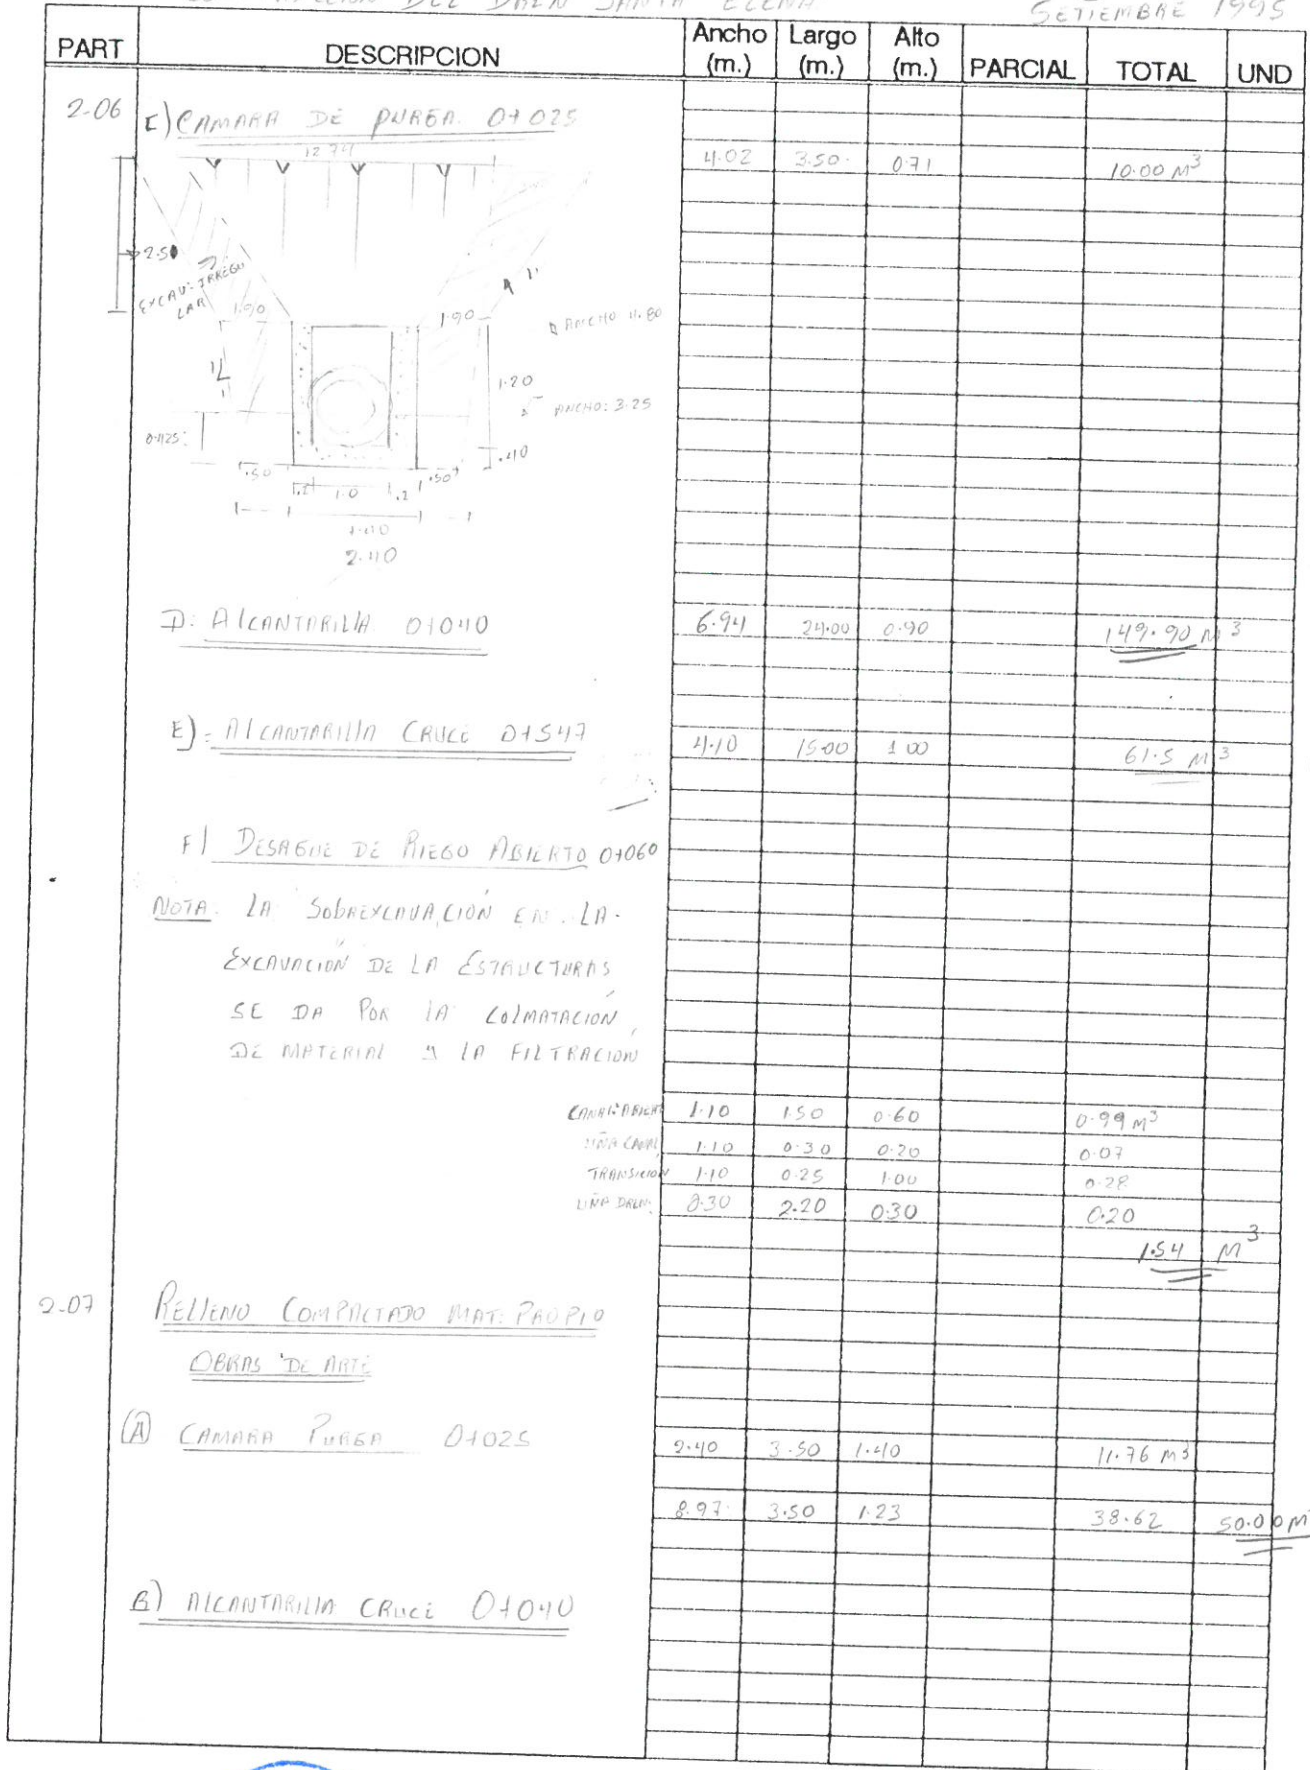 DEL DREN SANTA ELENA
SETIEMBRE 1995
PART DESCRIPCION Ancho (m.) Largo (m.) Alto (m.) PARCIAL TOTAL UND
2-06 C) CAMARA DE PURGA 0+025
12.79
4.02 3.50 0.71 10.00 M3
2.50
EXCAV: IRREGU
LAR
1.90 1.90
ANCHO 4.80
1.20
ANCHO: 3.25
0.425:
.40
.50 .50
.2 1.0 .2
1.40
2.40
D: ALCANTARILLA 0+040 6.94 24.00 0.90 149.90 M3
E) = ALCANTARILLA CRUCE 0+547 4.10 15.00 1.00 61.5 M3
F) DESAGUE DE RIEGO ABIERTO 0+060
NOTA: LA SOBREXCAVACIÓN EN LA
EXCAVACIÓN DE LA ESTRUCTURAS
SE DA POR LA COLMATACIÓN,
DE MATERIAL Y LA FILTRACION
CANAL ABIERT 1.10 1.50 0.60 0.99 M3
UÑA CANAL 1.10 0.30 0.20 0.07
TRANSICION 1.10 0.25 1.00 0.28
UÑA DREN: 0.30 2.20 0.30 0.20
1.54 M3
2-07 RELLENO COMPACTADO MAT: PROPIO
OBRAS DE ARTE
(A) CAMARA PURGA 0+025 2.40 3.50 1.40 11.76 M3
8.97 3.50 1.23 38.62 50.00 M
B) ALCANTARILLA CRUCE 0+040